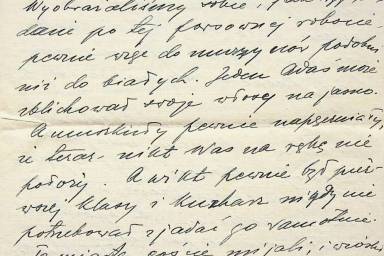 Wyobraziliśmy sobie,
danie po tej forsownej robocie
pewnie więc do murzynów podobni
niż do białych. Jeden Adaś może
zblichował swoje włosy na jasno.
A muskuły pewnie napęczniały,
że teraz nikt Was na rękę nie
położy. A wikt pewnie był pier-
wszej klasy i kucharz nigdy nie
potrzebował zjadać go samotnie.
goście mijali, i